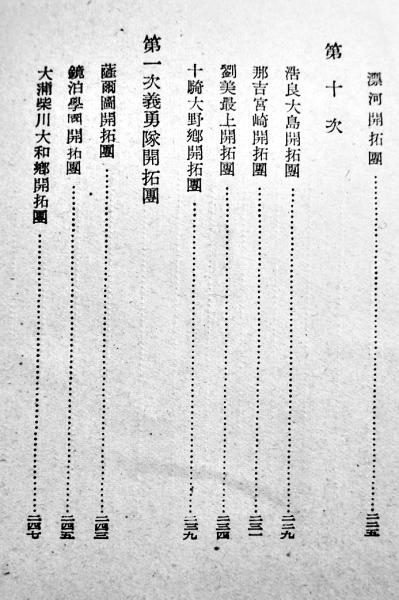 漂河開拓團……二二五
第十次
浩良大島開拓團……二二九
那吉宮崎開拓團……二三一
劉美最上開拓團……二三四
十騎大野鄉開拓團……二三九
第一次義勇隊開拓團
薩爾圖開拓團……二四三
鏡泊學園開拓團……二四五
大蒲柴川大和鄉開拓團……二四七